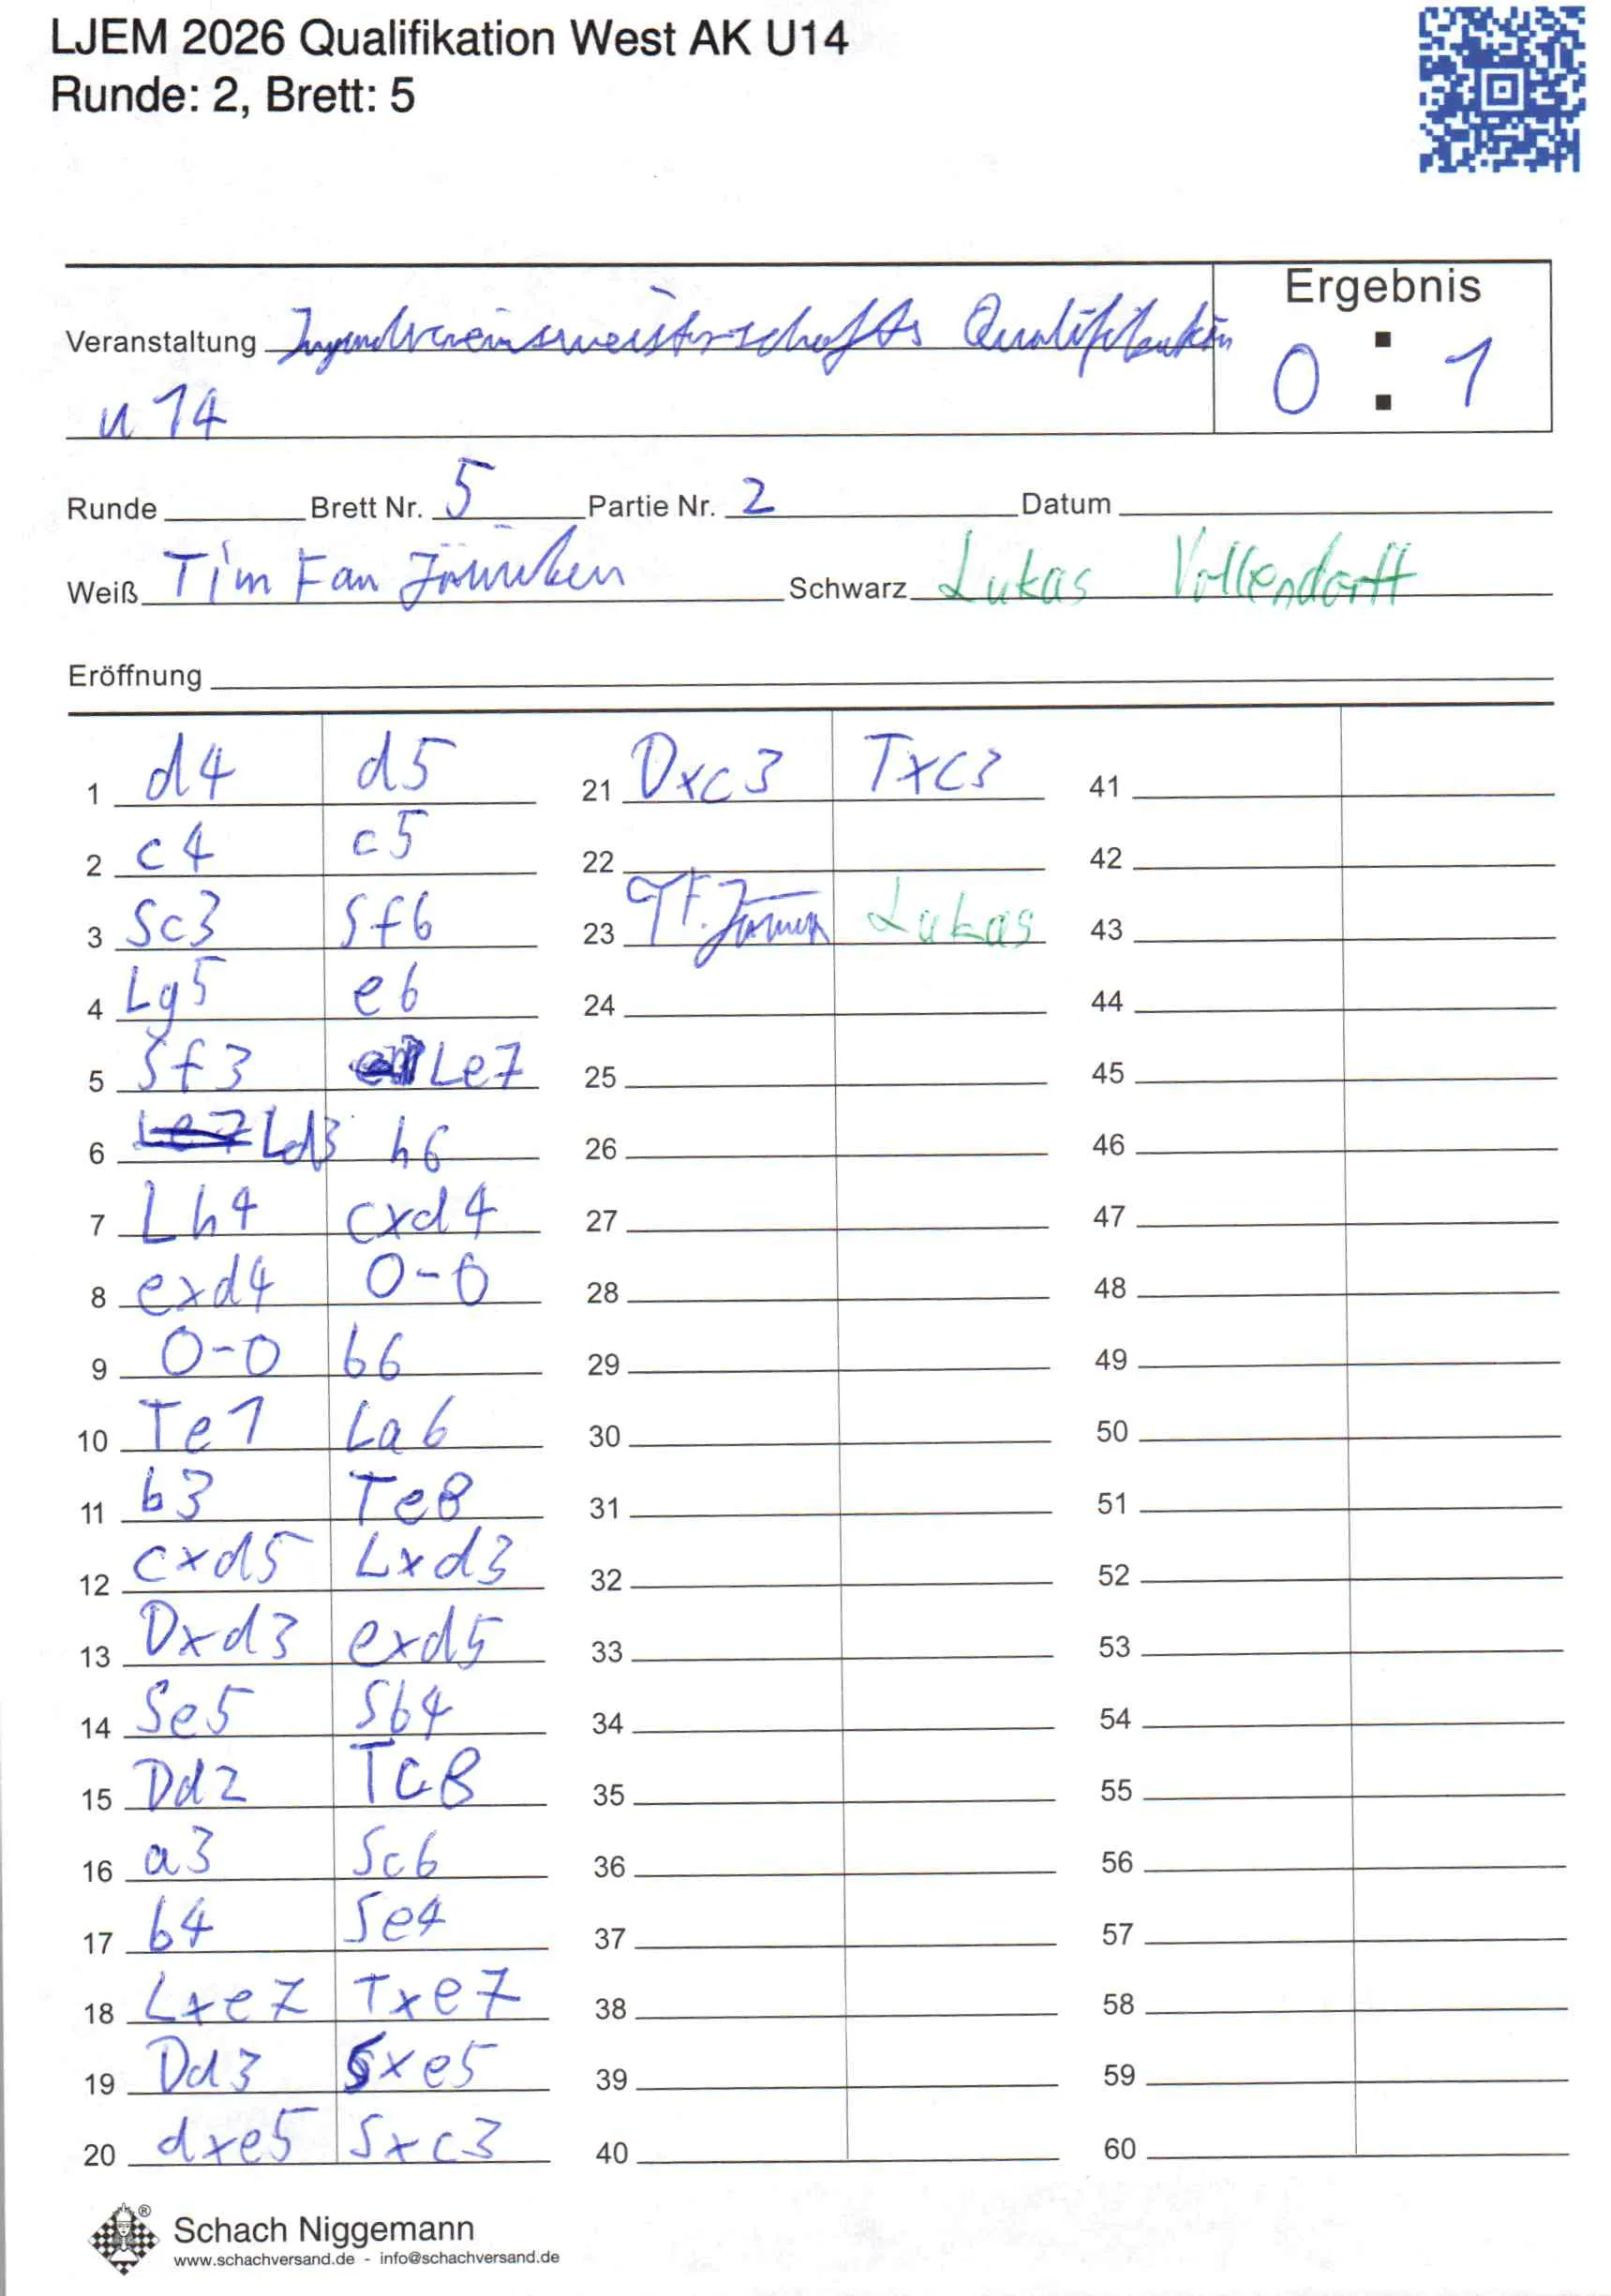 LJEM 2026 Qualifikation West AK U14
Runde: 2, Brett: 5
Ergebnis
Veranstaltung Jugendvereinsmeisterschafts Qualifikation
u 14
0 : 1
Runde Brett Nr. 5 Partie Nr. 2 Datum
Weiß Tim Fan Schwarz Lukas Vollendorff
Eröffnung
1 d4 d5 21 Dxc3 Txc3 41
2 c4 c5 22 42
3 Sc3 Sf6 23 Lukas 43
4 Lg5 e6 24 44
5 Sf3 Le7 25 45
6 Le7 Ld3 h6 26 46
7 Lh4 cxd4 27 47
8 exd4 0-0 28 48
9 0-0 b6 29 49
10 Te1 La6 30 50
11 b3 Te8 31 51
12 cxd5 Lxd3 32 52
13 Dxd3 exd5 33 53
14 Se5 Sb4 34 54
15 Dd2 Tc8 35 55
16 a3 Sc6 36 56
17 b4 Se4 37 57
18 Lxe7 Txe7 38 58
19 Dd3 Sxe5 39 59
20 dxe5 Sxc3 40 60
Schach Niggemann
www.schachversand.de - info@schachversand.de